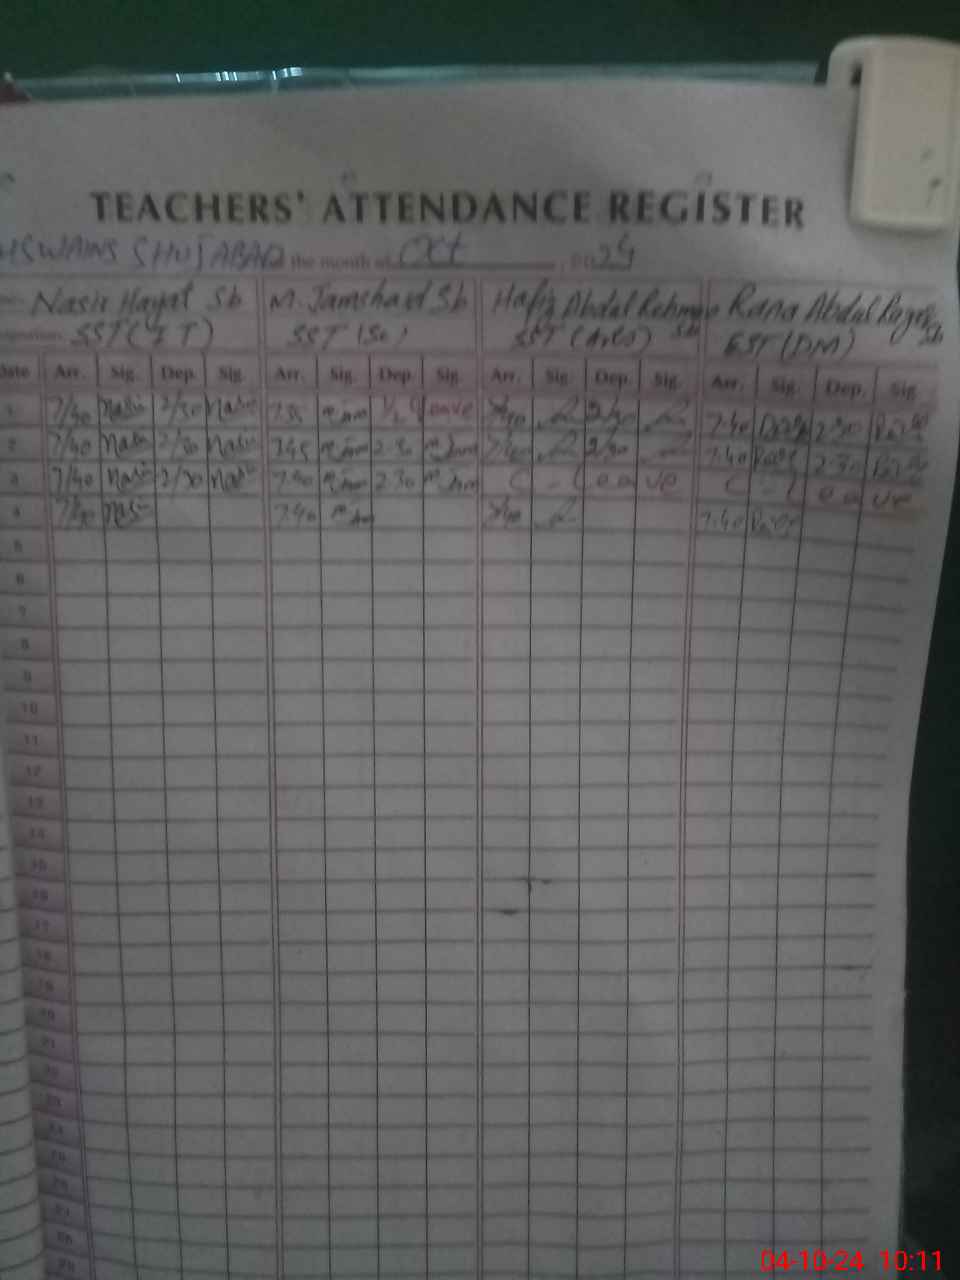 TEACHERS' ATTENDANCE REGISTER
SHUJABAD the month of Oct 24
Nasir Hayat Sb M. Jamshaid Sb Hafiz Abdul Rehman Sb Rana Abdul Sb
SST (IT) SST (Sc) SST (Arts) EST (DM)
Date Arr. Sig. Dep. Sig. Arr. Sig. Dep. Sig. Arr. Sig. Dep. Sig. Arr. Sig. Dep. Sig
1 7/40 Nasir 2/30 Nasir 7.35 1/2 Leave 7/40 2/30 7.40 2.30
2 7/40 Nasir 2/30 Nasir 7.45 2.30 7/40 2/30 7.40 2.30
3 7/40 Nasir 2/30 Nasir 7.40 2.30 C - Leave C - Leave
4 7/40 Nasir 7.40 7/40 7.40
5
6
7
8
9
10
11
12
13
14
15
16
17
18
19
20
21
22
23
24
25
26
27
28
29
04-10-24 10:11